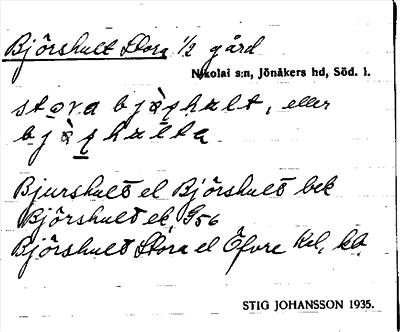 Björshult Stora 1/2 gård
Nikolai s:n, Jönåkers hd, Söd. l.
stora bjø̀ʂhult, eller
bjø̀ʂhulta
Bjurshult el Björshult bek
Björshult el, G56
Björshult Stora el Öfvre kil, kb
STIG JOHANSSON 1935.